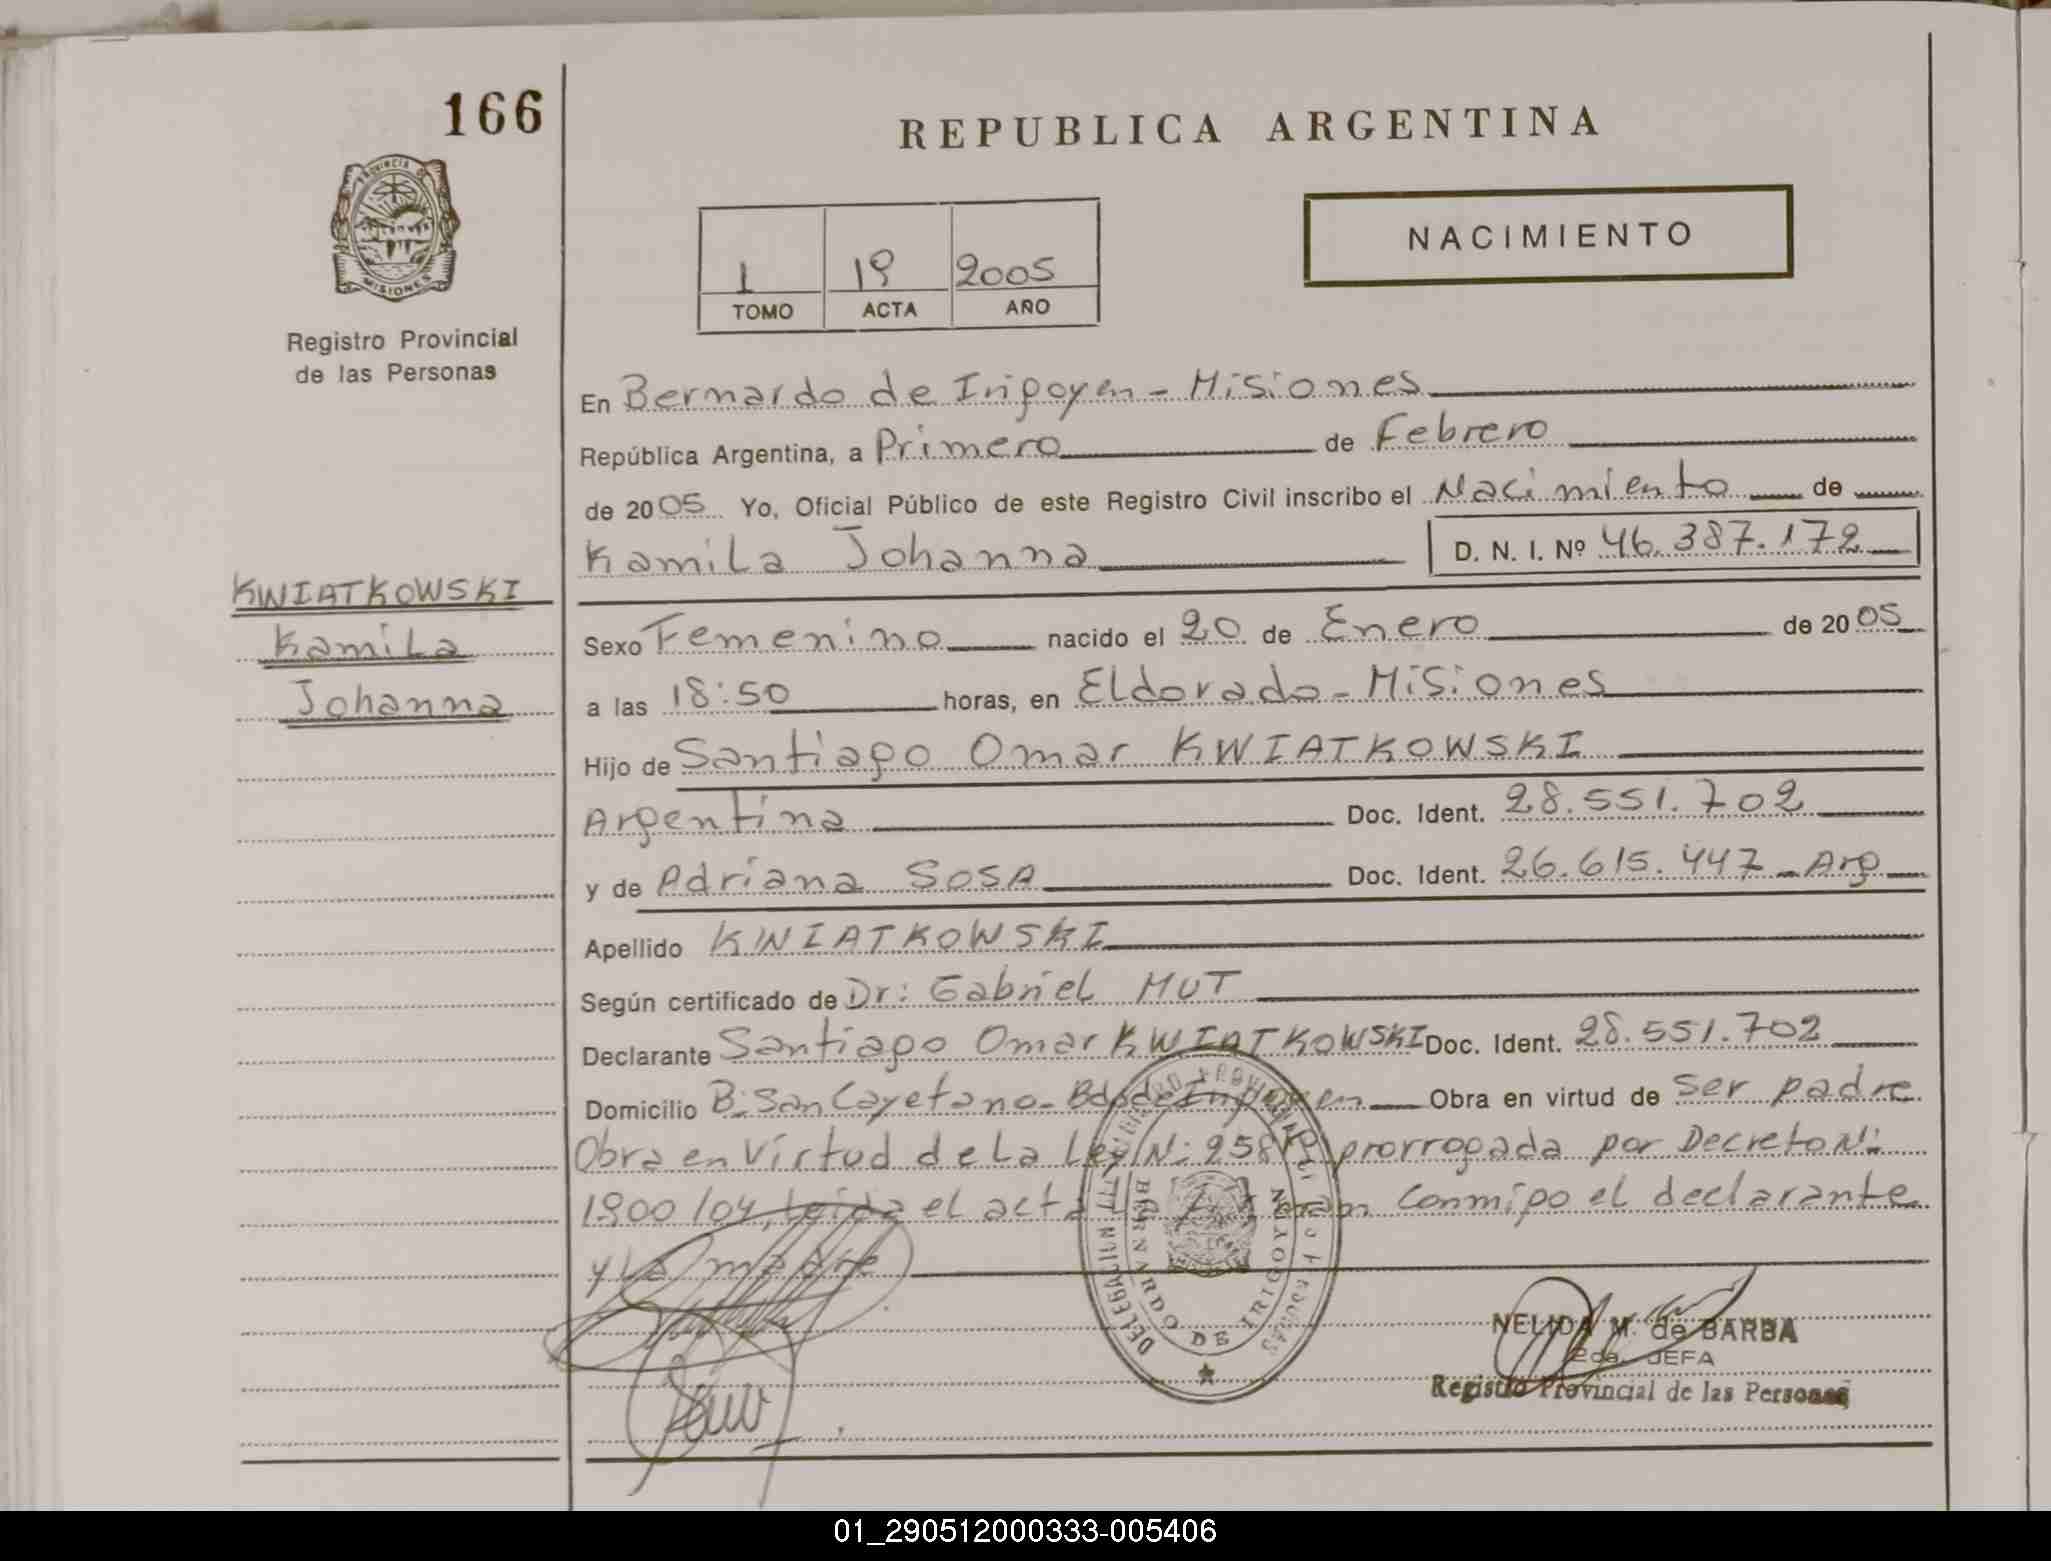 166
REPUBLICA ARGENTINA
PROVINCIA DE
MISIONES
Registro Provincial
de las Personas
1 19 2005
TOMO ACTA AÑO
NACIMIENTO
En Bernardo de Irigoyen - Misiones
República Argentina, a Primero de Febrero
de 2005 Yo, Oficial Público de este Registro Civil inscribo el Nacimiento de
Kamila Johanna D. N. I. Nº 46.387.172
KWIATKOWSKI
Kamila
Johanna
Sexo Femenino nacido el 20 de Enero de 2005
a las 18:50 horas, en Eldorado - Misiones
Hijo de Santiago Omar KWIATKOWSKI
Argentina Doc. Ident. 28.551.702
y de Adriana SOSA Doc. Ident. 26.615.447 - Arg
Apellido KWIATKOWSKI
Según certificado de Dr: Gabriel MUT
Declarante Santiago Omar KWIATKOWSKI Doc. Ident. 28.551.702
Domicilio B: San Cayetano - Bdo de Irigoyen Obra en virtud de ser padre
Obra en Virtud de La Ley N: prorrogada por Decreto N:
1900/04, Leída el acta conmigo el declarante
y La madre
DELEGACION
BERNARDO DE IRIGOYEN
NELIDA M. de BARBA
2da. JEFA
Registro Provincial de las Personas
01_290512000333-005406